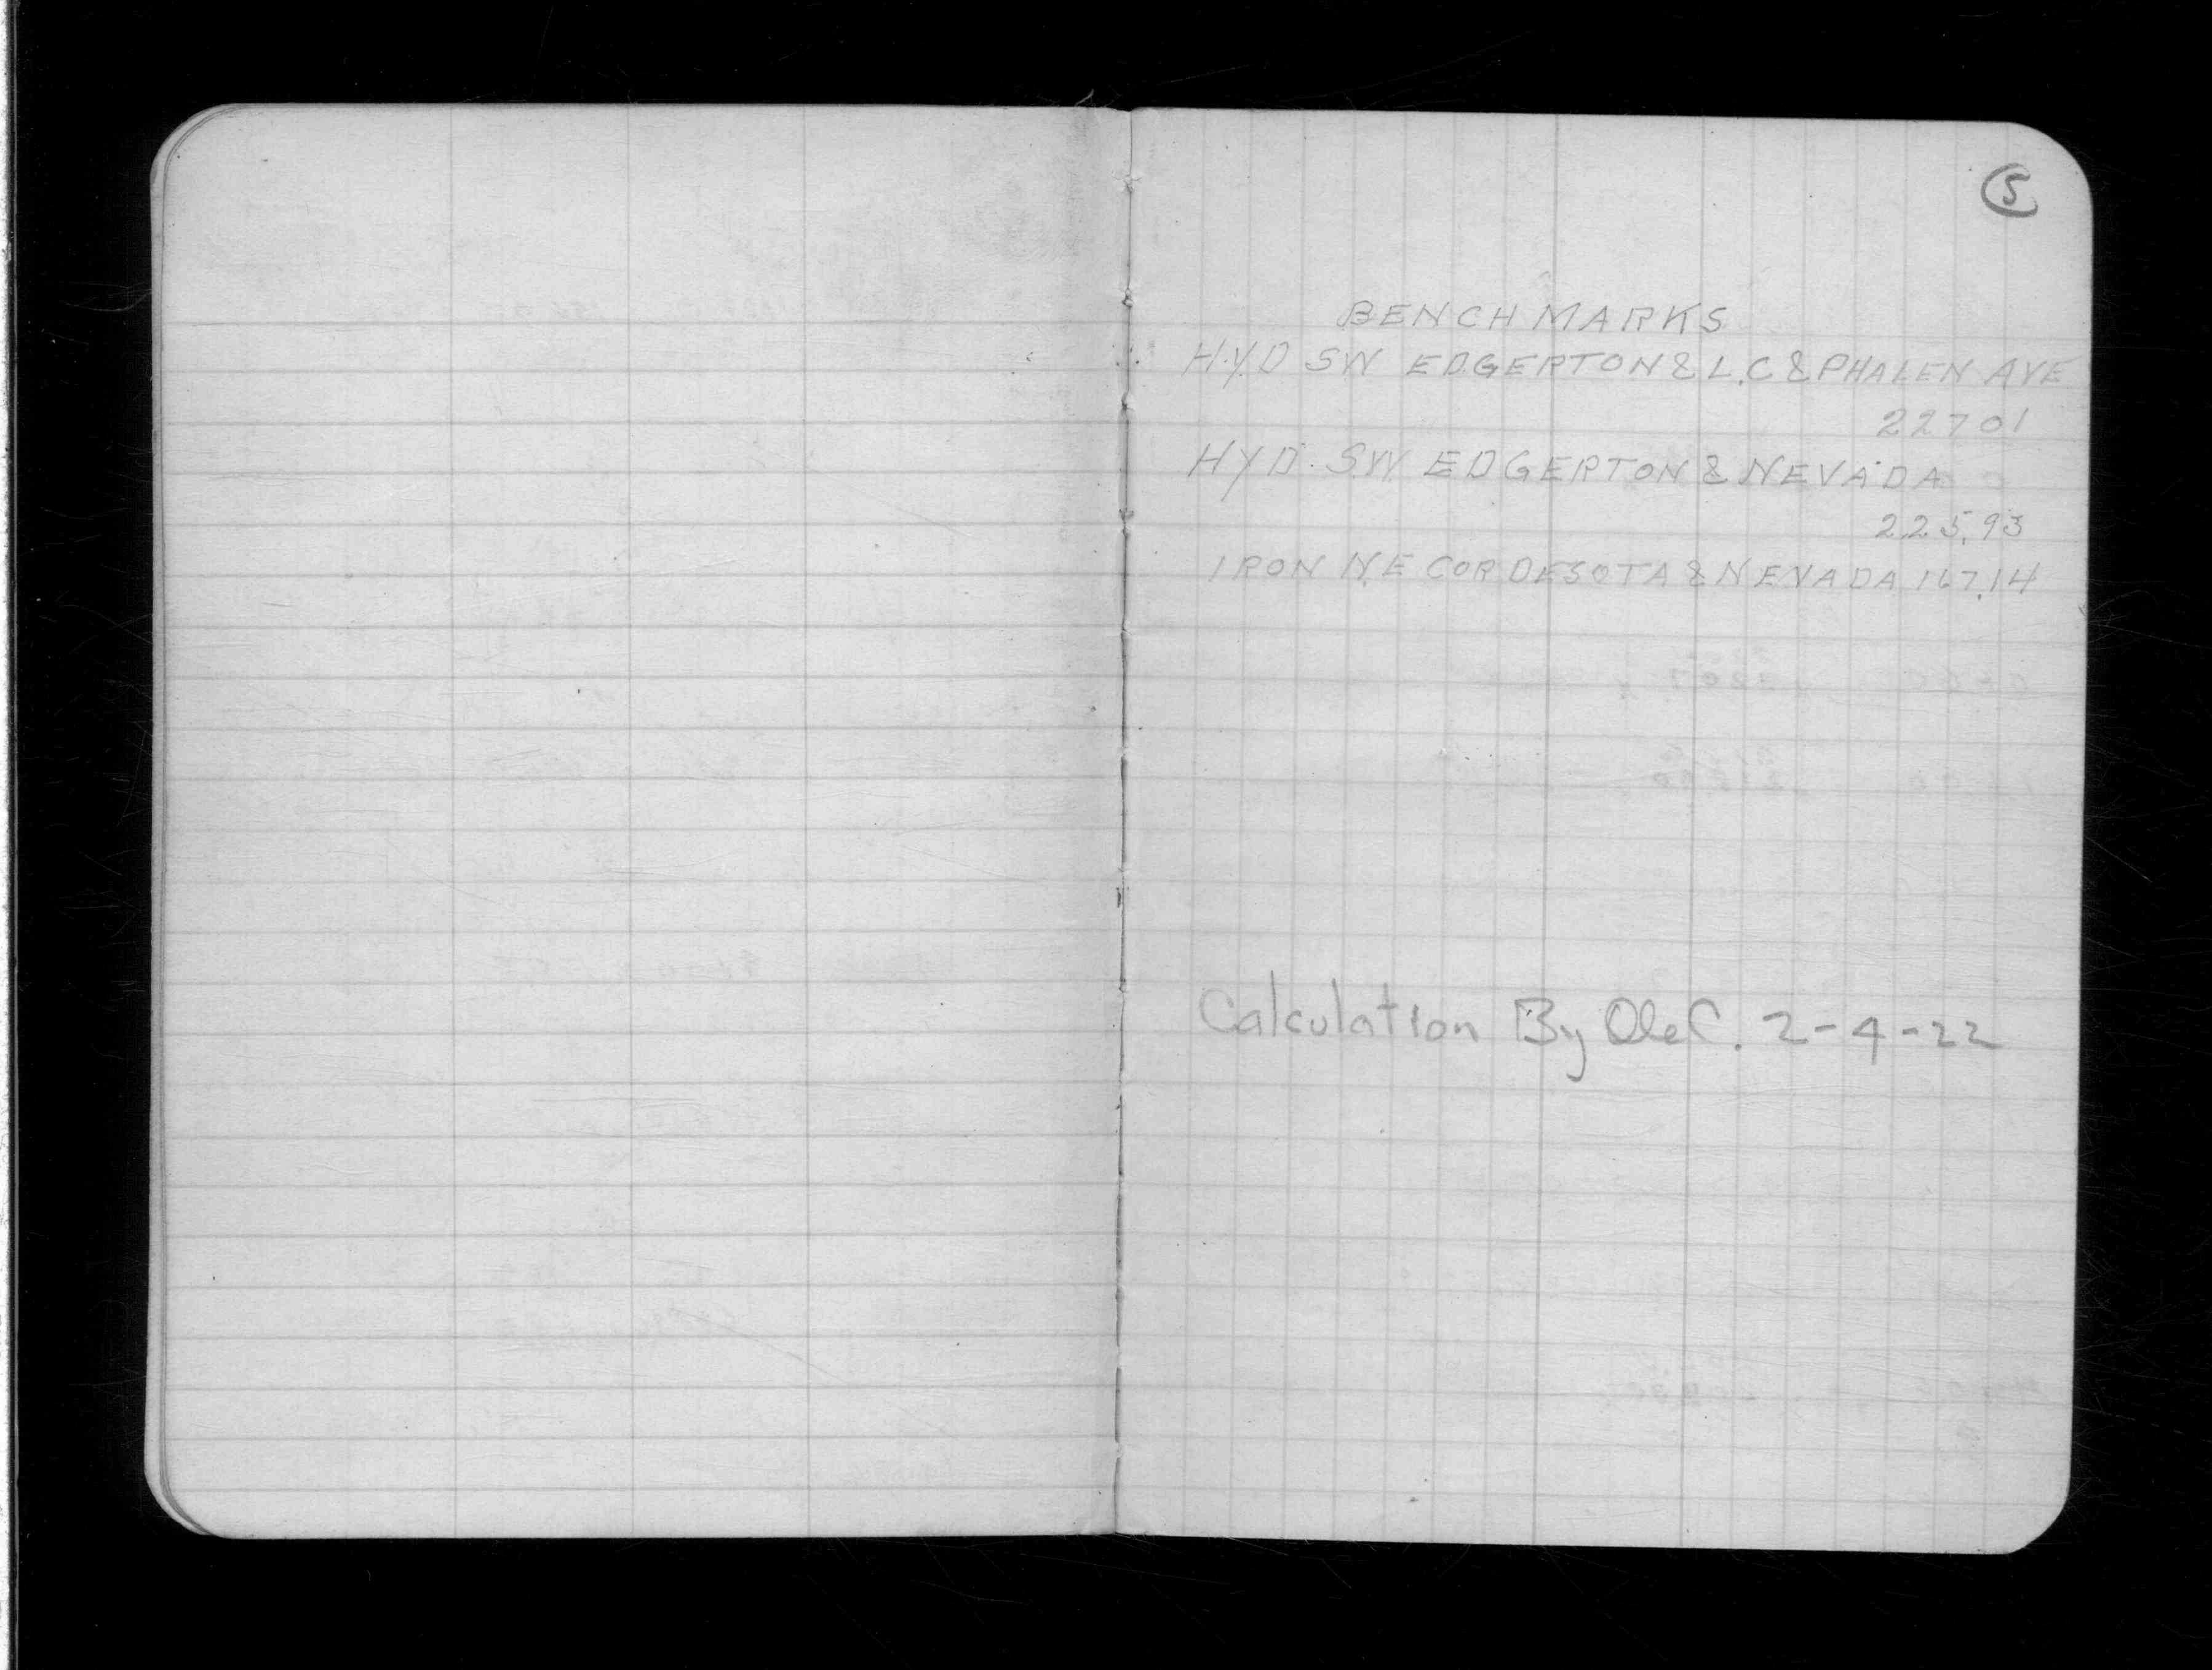 5
BENCH MARKS
HYD SW EDGERTON & L.C & PHALEN AVE
22701
HYD. S.W. EDGERTON & NEVADA
225.93
IRON N.E COR DESOTA & NEVADA 167.14
Calculation By Ole C. 2-4-22